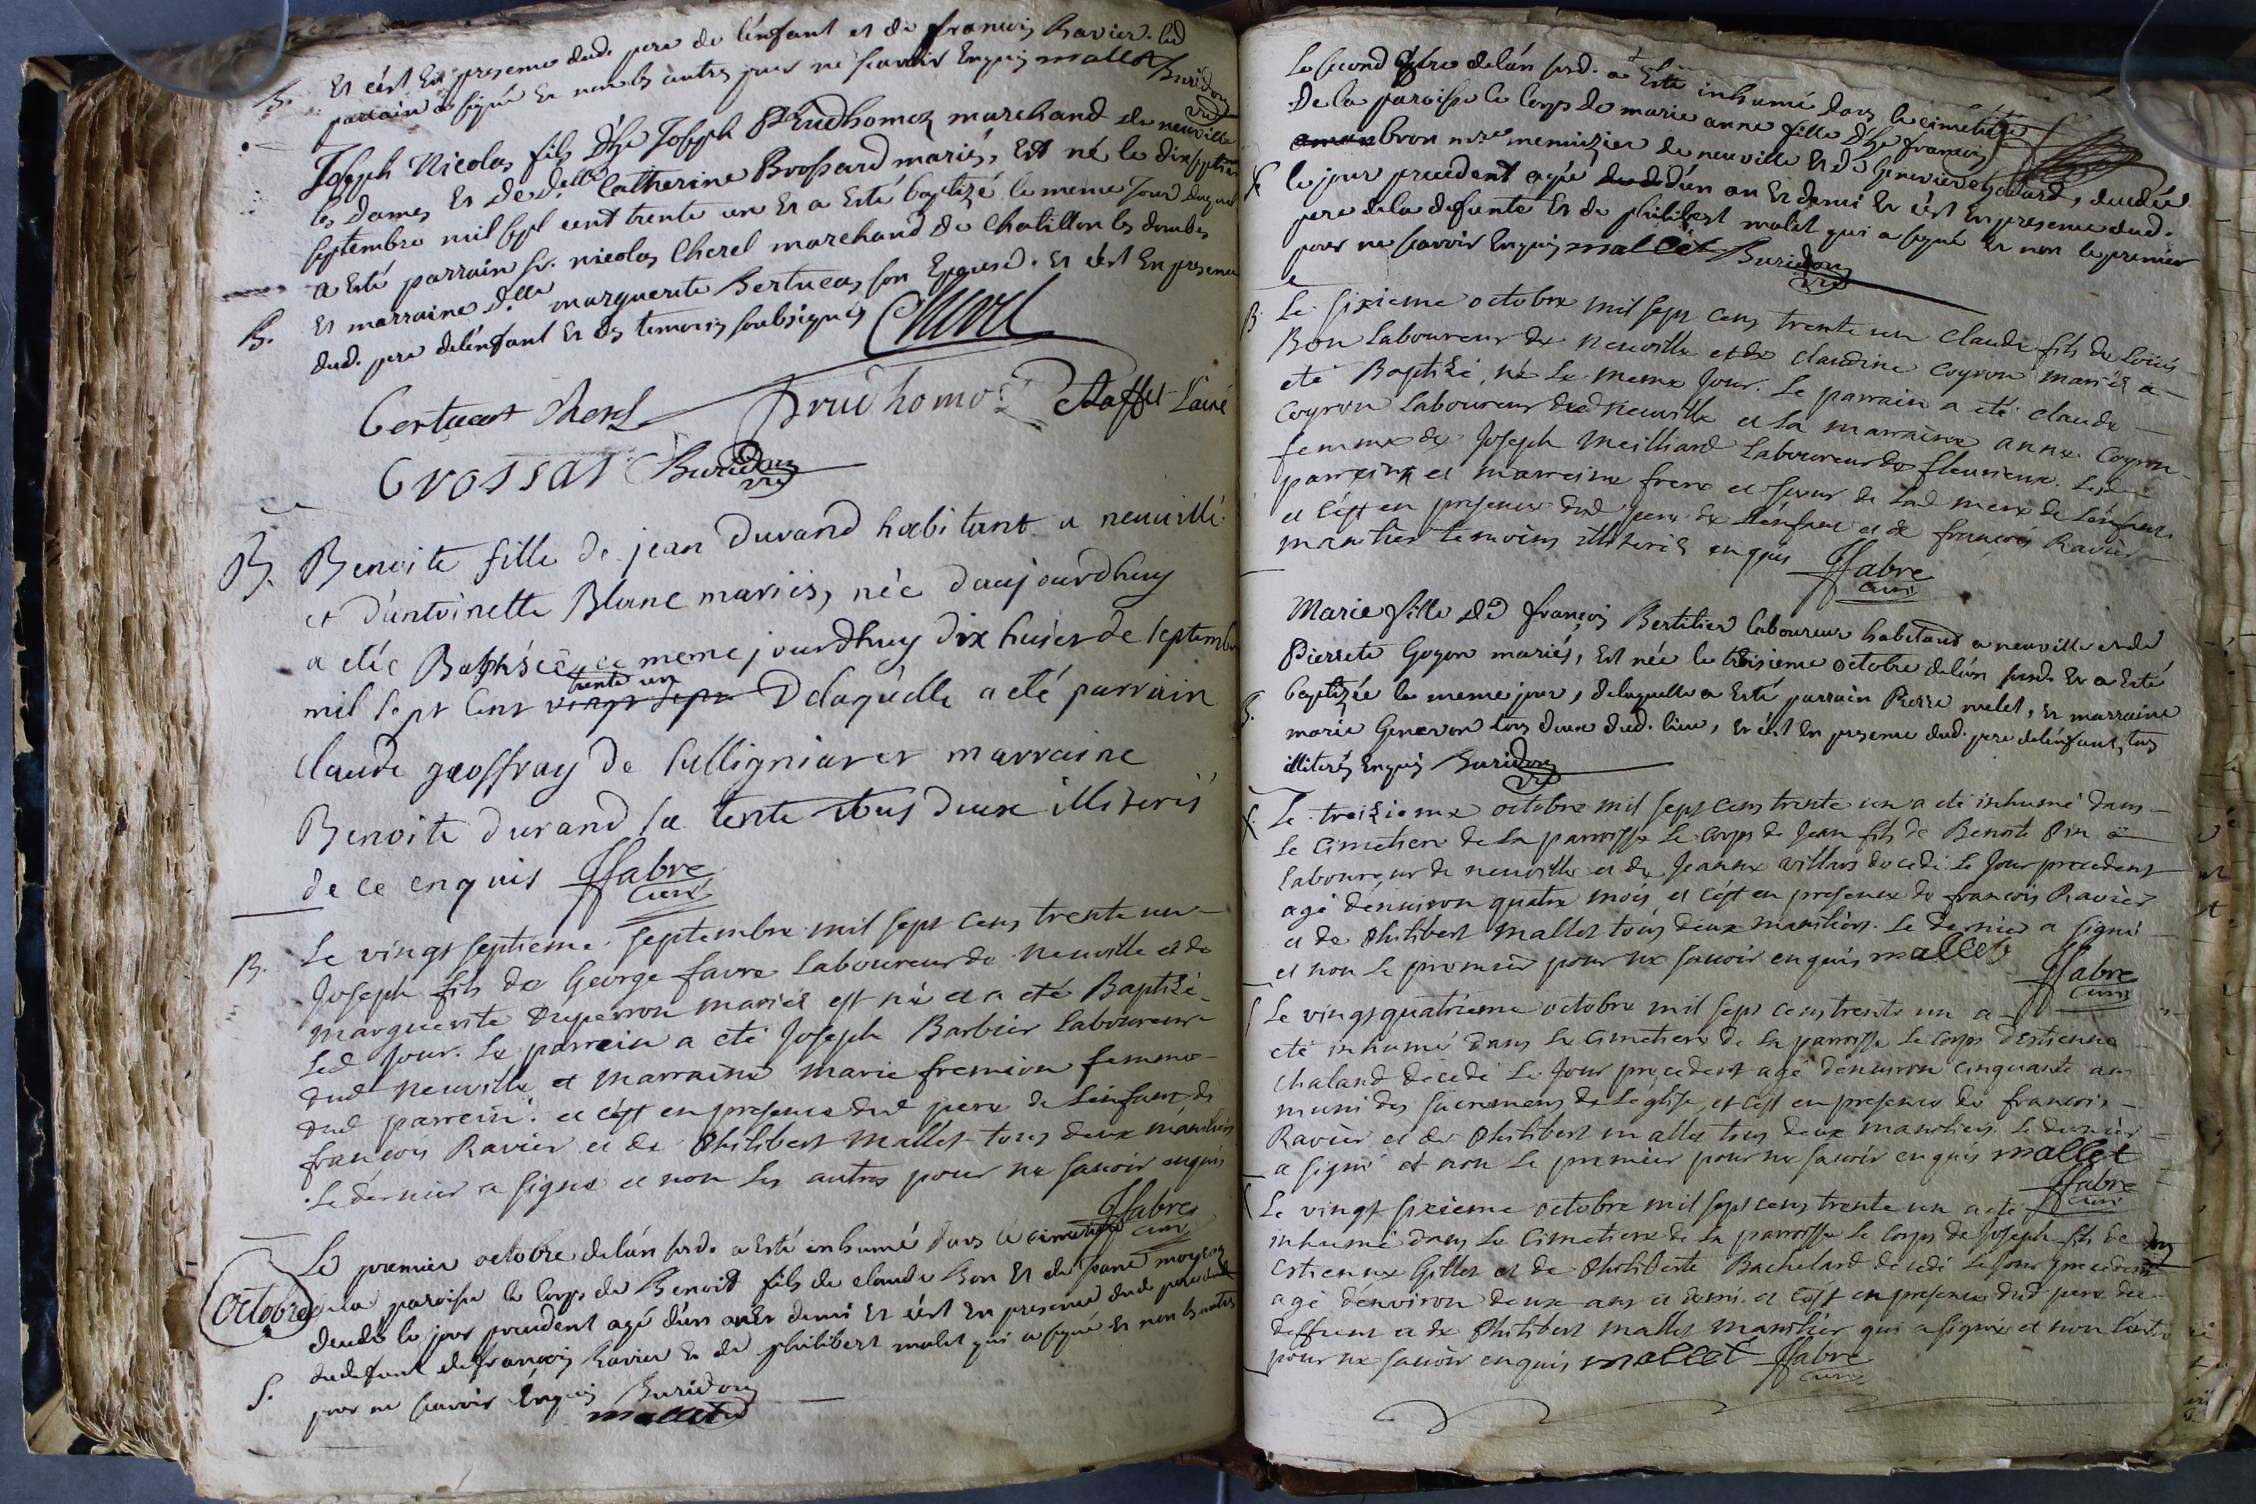 B. Et c'est En presence dud. pere de l'enfant et de francois Ravier. led
parrain a signé Et non les autres pour ne scavoir Enquis mallet Buridon
vic
Joseph Nicolas fils d'he Joseph Prudhomez marchand de neuville
les Dames Et De delle Catherine Brossard mariés, Est né le dix septieme
septembre mil sept cent trente un Et a Esté baptizé le meme Jour duquel
a Esté parrain sr. nicolas Cherel marchand de Chatillon les dombes
B. Et marraine d.lle marguerite Bertucat son Epouse. Et c'est En presence
dud. pere de l'enfant Et des temoins soubsignés Cherel
Bertucat Cherel Prudhomo Laine
Grossat Buridon
vic
B. Benoite fille de jean Durand habitant a neuville
et d'antoinette Blanc mariés, née daujourdhuy
a etée Baptisée ce meme jourdhuy dix huict de septembre
trente un
mil sept cent vingt sept Delaquelle a eté parrain
claude geoffray de marraine
Benoite durand sa tente tous deux illiterés
de ce enquis Ffabre
curé
B. Le vingt septieme septembre mil sept cens trente un
Joseph fils de George favre Laboureur de Neuville et de
marguerite Duperron mariés est né et a eté Baptisé
led Jour. Le parrein a eté Joseph Barbier Laboureur
dud Neuville et marraine marie fremion femme
dud parrein. et c'est en presence dud pere de L'enfant de
françois Ravier et de Philibert Mallet tous deux maniliers
Le dernier a signé et non les autres pour ne savoir enquis
Ffabre
curé
Octobre
Le premier octobre de l'an susd. a Esté inhumé dans le cimetiere
de la paroisse le Corps de Benoist fils de claude Bon Et de jeane moyron
decedé le jour precedent agé d'un an Et demi Et c'est En presence dud. pere
du defunt de françois Ravier Et de philibert malet qui a signé Et non les autres
S. pour ne scavoir Enquis Buridon
mallet vic
Le second 8bre de l'an susd. a Esté inhumé dans le cimetiere
De la paroisse le Corps de marie anne fille d'he francois
bron mre menuizier de neuville Et de Genevieve Godard, decedée
le jour precedent agée d'un an Et demi Et c'est En presence dud.
pere de la defunte Et de philibert malet qui a signé Et non le premier
pour ne scavoir Enquis mallet Buridon
vic
B. Le sixieme octobre mil sept cens trente un Claude fils de Loüis
Bon Laboureur de Neuville et de Claudine Coyron mariés a
eté Baptisé, né Le meme Jour. Le parrain a eté claude
Coyron Laboureur dud Neuville et la marraine anne Coyron
femme de Joseph Meilliard Laboureur de fleurieux. Lesd
parrein et marreine frere et soeur de Lad mere de L'enfant
et c'est en presence dud pere de L'enfant et de francois Ravier
manilier temoins illiterés enquis Ffabre
curé
Marie fille de françois Bertilier laboureur habitant a neuville et de
Pierrete Goyon mariés, Est née le troisieme octobre de l'an susd. Et a Esté
baptizée le meme jour, de laquelle a Esté parrain Pierre malet, Et marraine
B. marie Genevon tous deux dud. lieu, Et c'est En presence dud. pere de l'enfant, tous
illiterés Enquis Buridon
vic
Le treizieme octobre mil sept cens trente un a eté inhumé dans
Le cimetiere de la parroisse Le corps de Jean fils de Benoite Pin
laboureur de neuville et de Jeanne villars decedé Le Jour precedent
agé d'environ quatre mois et c'est en presence de francois Ravier
et de Philibert Mallet tous deux maniliers. Le dernier a signé
et non Le premier pour ne savoir enquis mallet Ffabre
curé
Le vingt quatrieme octobre mil sept cens trente un a
eté inhumé dans Le cimetiere de la parroisse Le corps d'estienne
chaland decedé Le Jour precedent agé d'environ cinquante ans
muni des sacremens de L'eglise, et c'est en presence de francois
Ravier et de Philibert mallet tous deux maniliers. Le dernier
a signé et non Le premier pour ne savoir enquis mallet
Ffabre
curé
Le vingt sixieme octobre mil sept cens trente un a eté
inhumé dans Le cimetiere de la parroisse Le corps de Joseph fils de
Estienne Gillet et de Philiberte Bachelard decedé Le Jour precedent
agé d'environ deux ans et demi. et c'est en presence dud pere du
deffunt et de Philibert mallet manilier qui a signé et non L'autre
pour ne savoir enquis mallet Ffabre
curé